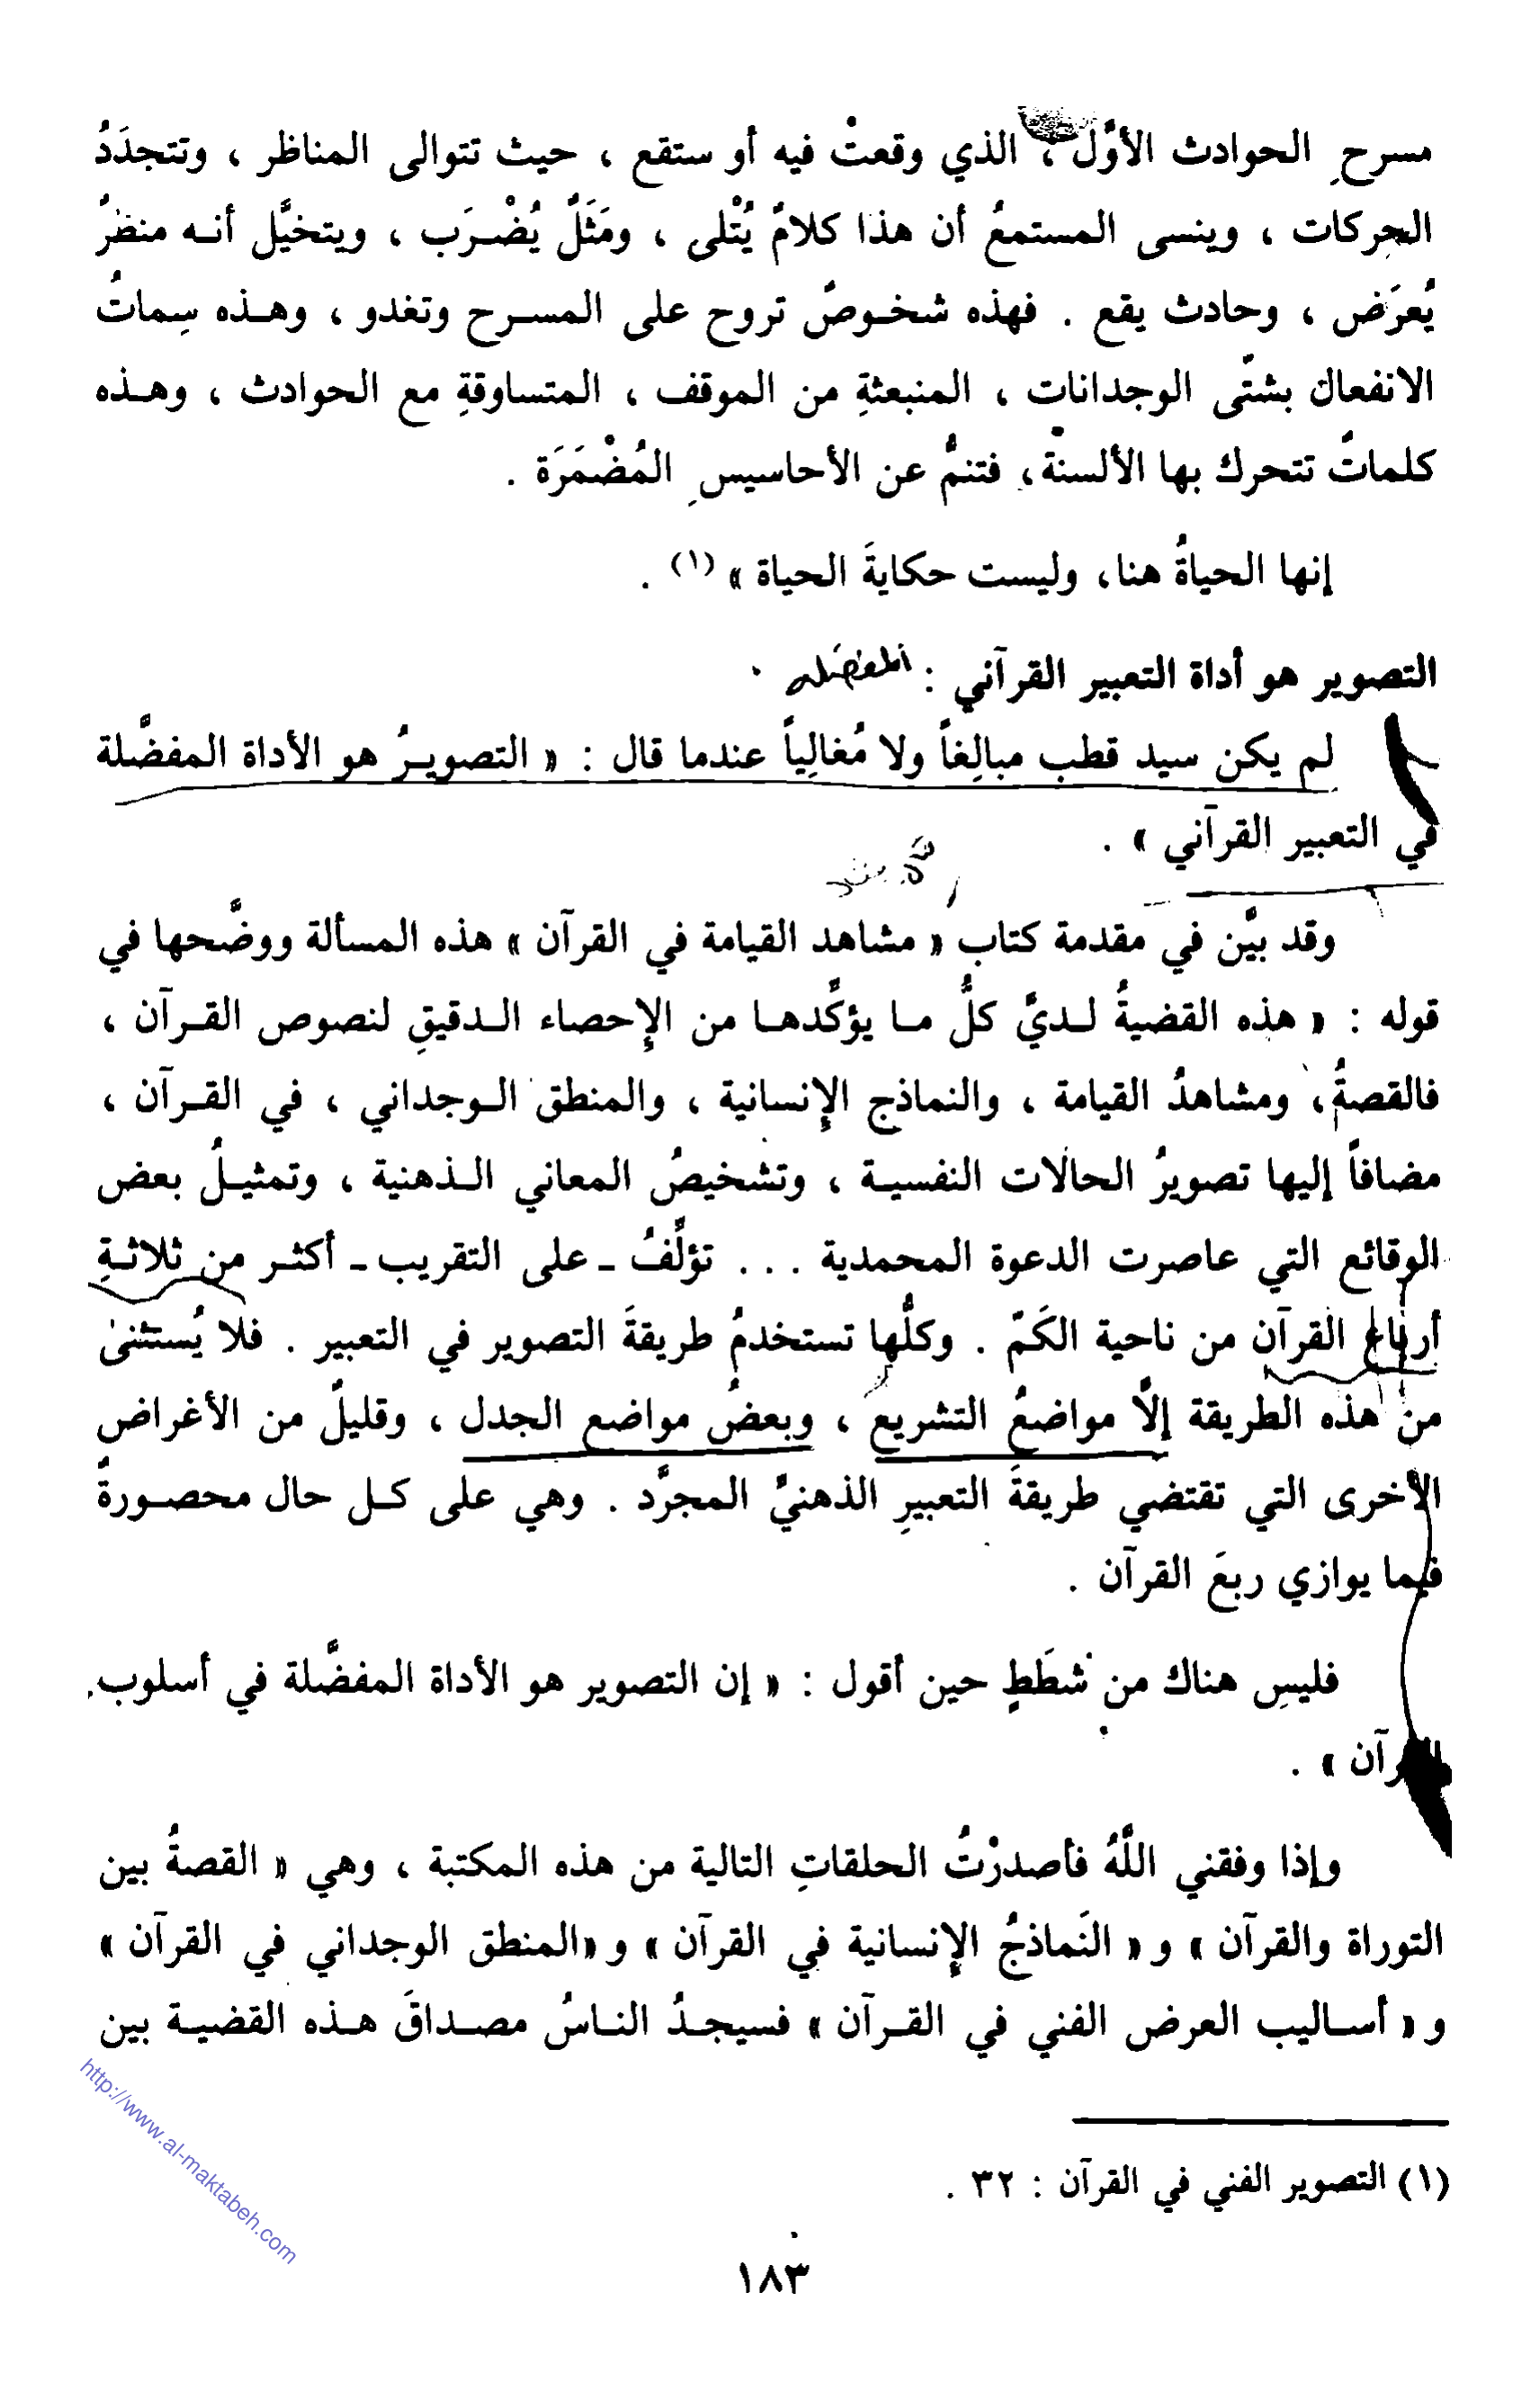 مسرحِ الحوادث الأوَّل ، الذي وقعتْ فيه أو ستقع ، حيث تتوالى المناظر ، وتتجدَدُ
الحركات ، وينسى المستمعُ أن هذا كلامٌ يُتْلى ، ومَثَلٌ يُضْرَب ، ويتخيَّل أنه منظرٌ
يُعرَض ، وحادث يقع . فهذه شخوصٌ تروح على المسرح وتغدو ، وهذه سِماتُ
الانفعال بشتّى الوجدانات ، المنبعثةِ من الموقف ، المتساوقةِ مع الحوادث ، وهذه
كلماتٌ تتحرك بها الألسنة ، فتنمُّ عن الأحاسيسِ المُضْمَرَة .
إنها الحياةُ هنا، وليست حكايةَ الحياة » (١) .
التصوير هو أداة التعبير القرآني : المفضله .
لم يكن سيد قطب مبالِغاً ولا مُغالِياً عندما قال : « التصويرُ هو الأداة المفضَّلة
في التعبير القرآني » .
وقد بيَّن في مقدمة كتاب « مشاهد القيامة في القرآن » هذه المسألة ووضَّحها في
قوله : « هذه القضيةُ لديَّ كلُّ ما يؤكِّدها من الإحصاء الدقيقِ لنصوص القرآن ،
فالقصةُ، ومشاهدُ القيامة ، والنماذج الإنسانية ، والمنطق الوجداني ، في القرآن ،
مضافاً إليها تصويرُ الحالات النفسية ، وتشخيصُ المعاني الذهنية ، وتمثيلُ بعض
الوقائع التي عاصرت الدعوة المحمدية . . . تؤلِّفُ ـ على التقريب ـ أكثر من ثلاثةِ
أرباع القرآن من ناحية الكَمّ . وكلُّها تستخدمُ طريقةَ التصوير في التعبير . فلا يُستثنىٰ
من هذه الطريقة إلّا مواضعُ التشريع ، وبعضُ مواضع الجدل ، وقليلٌ من الأغراض
الأخرى التي تقتضي طريقةَ التعبيرِ الذهنيِّ المجرَّد . وهي على كل حال محصورةٌ
فيما يوازي ربعَ القرآن .
فليس هناك من شَطَطٍ حين أقول : « إن التصوير هو الأداة المفضَّلة في أسلوب
القرآن » .
وإذا وفقني اللَّهُ فأصدرْتُ الحلقاتِ التالية من هذه المكتبة ، وهي « القصةُ بين
التوراة والقرآن » و « النَماذجُ الإنسانية في القرآن » و «المنطق الوجداني في القرآن »
و « أساليب العرض الفني في القرآن » فسيجدُ الناسُ مصداقَ هذه القضية بين
(١) التصوير الفني في القرآن : ٣٢ .
١٨٣
http://www.al-maktabeh.com